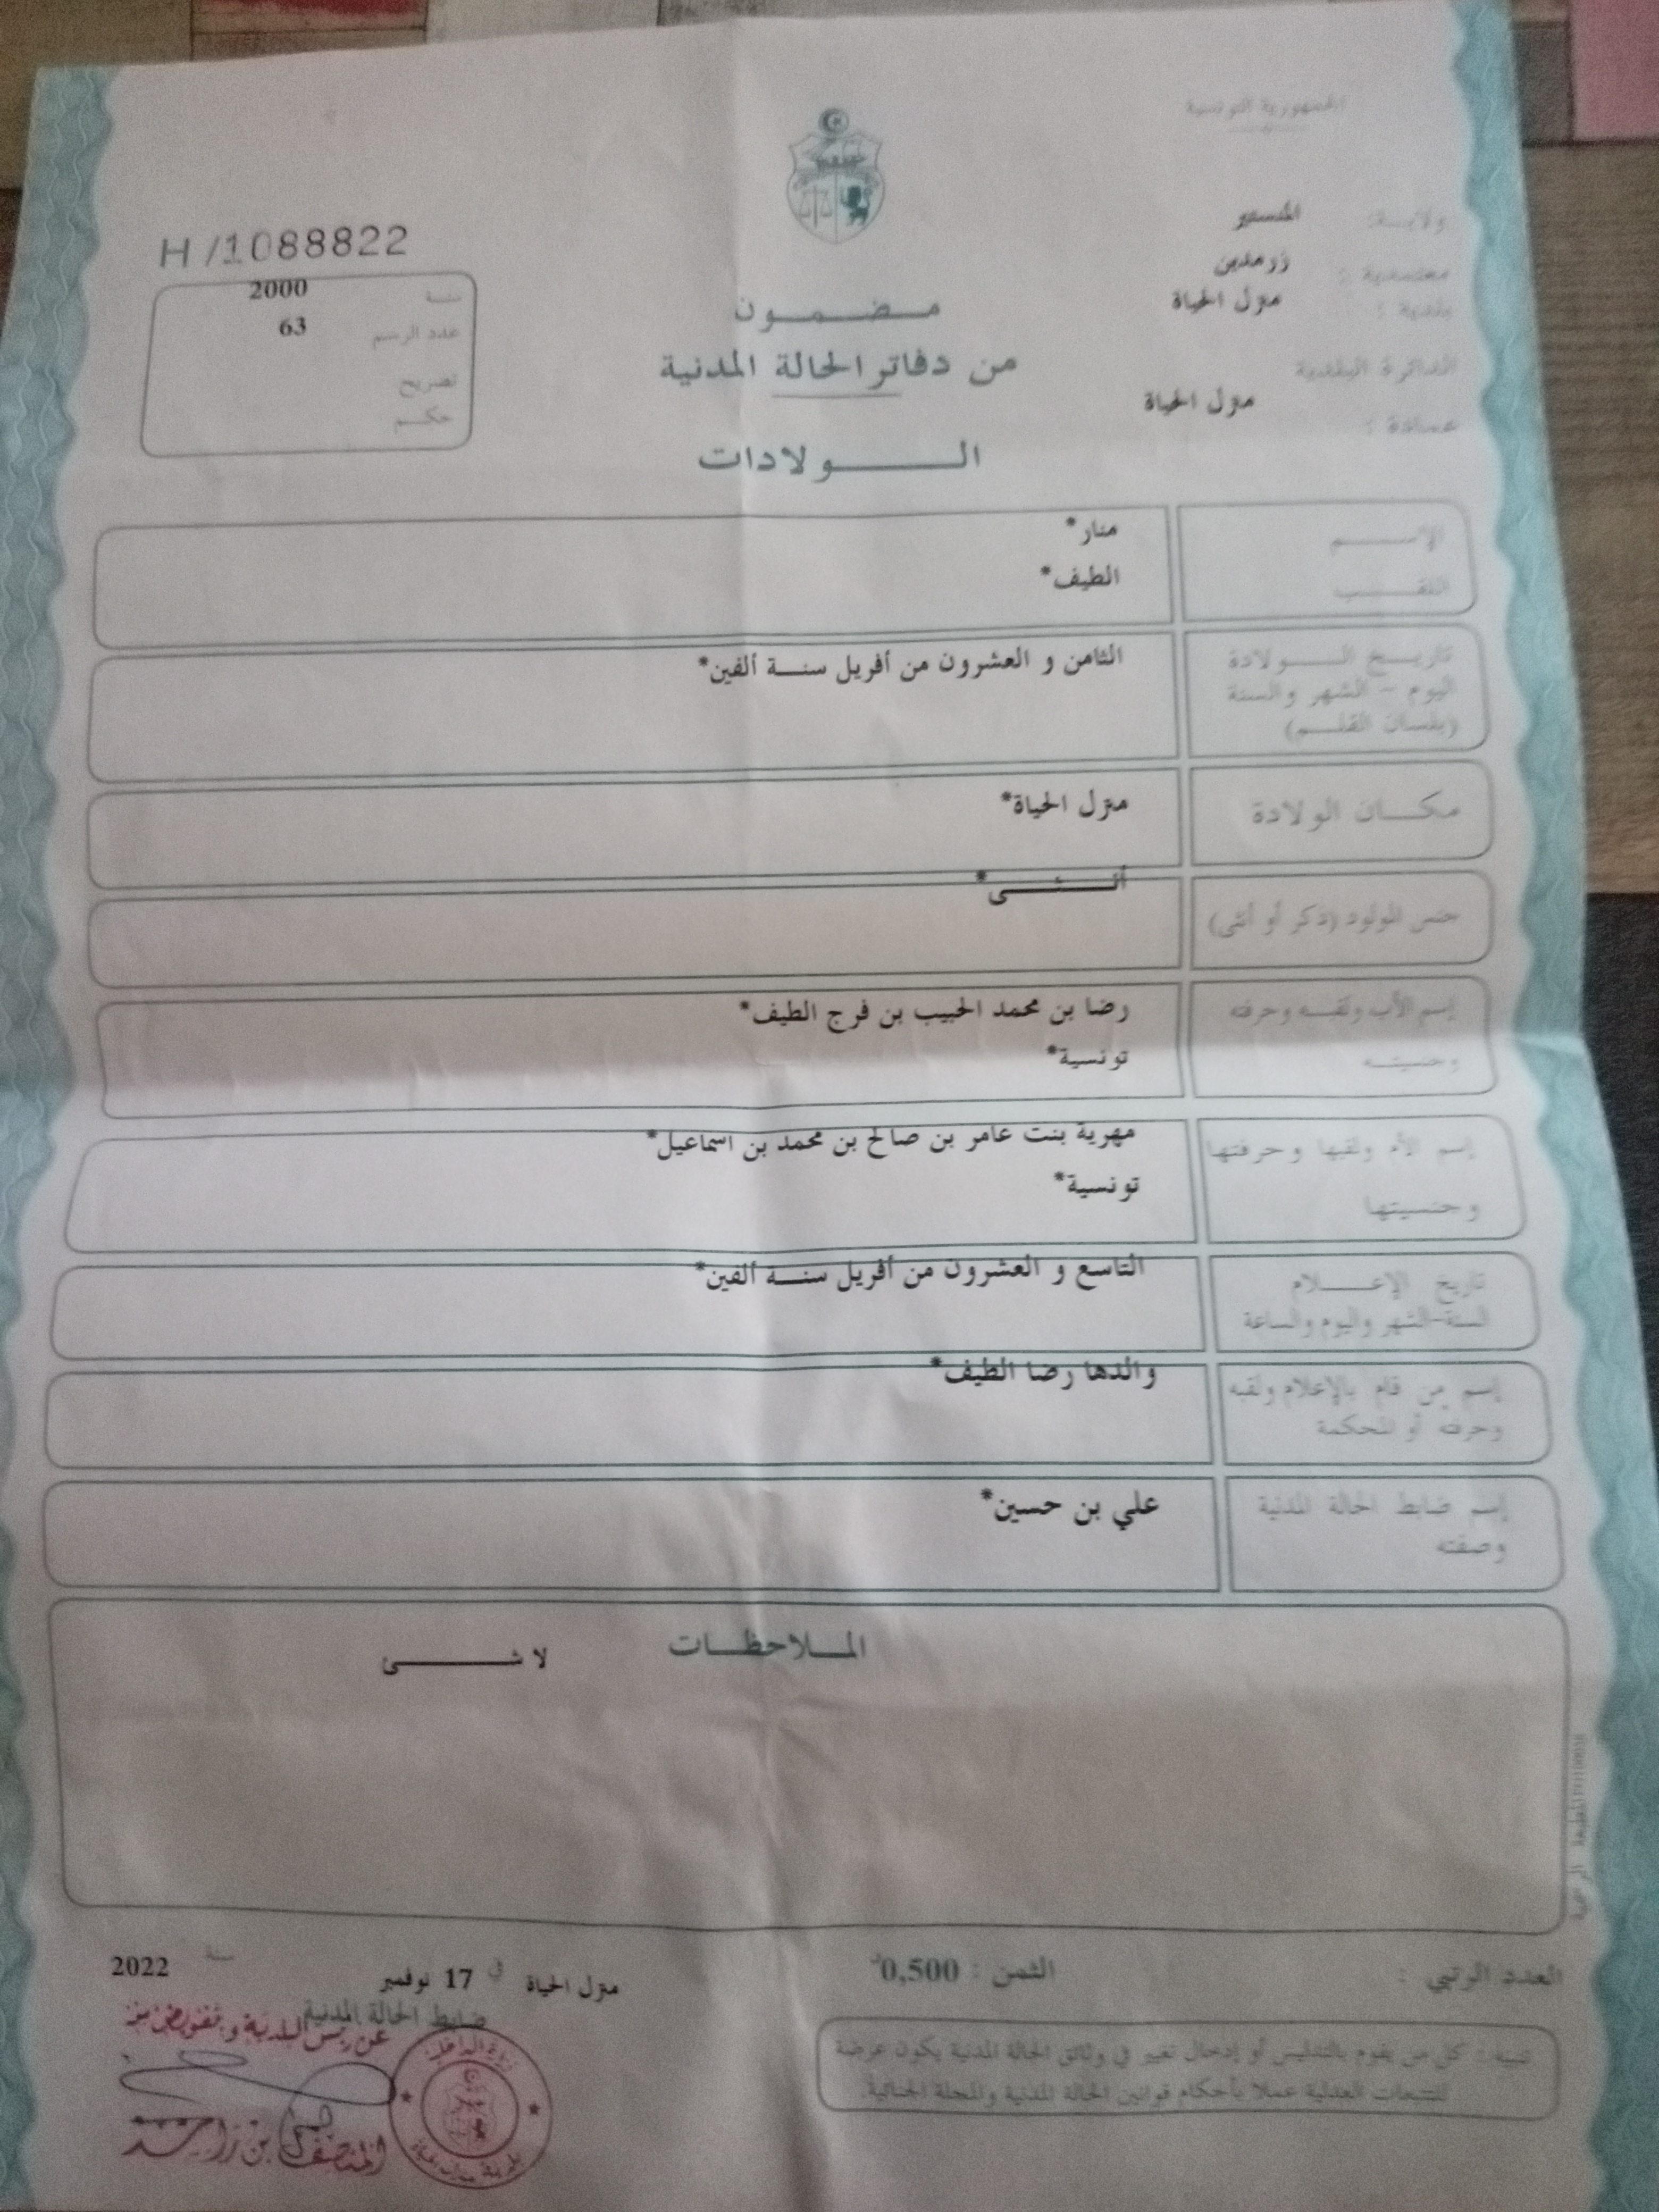 الجمهورية التونسية
ولايـة: المنستير
معتمدية : زرمدين
بلدية : منزل الحياة
الدائرة البلدية
منزل الحياة
عمـادة :
H/1088822
سنة 2000
عدد الرسم 63
تصريح
حكـم
مـضـمـون
من دفاتر الحالة المدنية
الـولادات
الإسـم منار*
اللقـب الطيف*
تاريـخ الـولادة الثامن و العشرون من أفريل سنـة ألفين*
اليوم - الشهر والسنة
(بلسان القلـم)
مكـان الولادة منزل الحياة*
جنس المولود (ذكر أو أنثى) أنـثـى*
إسم الأب ولقبـه وحرفته رضا بن محمد الحبيب بن فرج الطيف*
وجنسيتـه تونسية*
إسم الأم ولقبها وحرفتها مهرية بنت عامر بن صالح بن محمد بن اسماعيل*
وجنسيتها تونسية*
تاريخ الإعـلام التاسع و العشرون من أفريل سنـة ألفين*
السنة-الشهر واليوم والساعة
إسم من قام بالإعلام ولقبه والدها رضا الطيف*
وحرفته أو المحكمة
إسم ضابط الحالة المدنية علي بن حسين*
وصفته
المـلاحظـات
لا شـئ
المطبعة الرسمية
العدد الرتبي :
الثمن : 0,500د
منزل الحياة في 17 نوفمبر سنة 2022
ضابط الحالة المدنية
عن رئيس البلدية و بتفويض منه
المنصف بن راشد
وزارة الداخلية
بلدية منزل الحياة
تنبيه : كل من يقوم بالتدليس أو إدخال تغيير في وثائق الحالة المدنية يكون عرضة
للتتبعات العدلية عملا بأحكام قوانين الحالة المدنية والمجلة الجنائية.